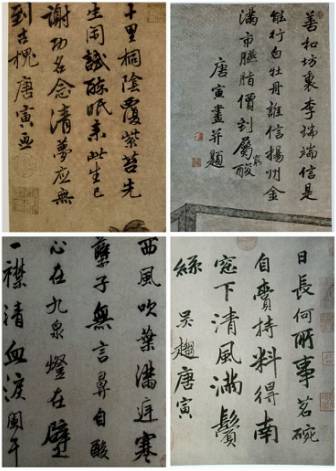 十里桐陰覆紫苔先
生閒試醉眠來此生已
謝功名念清夢應無
到古槐唐寅畫
善和坊裏李端端信是
能行白牡丹誰信揚州金
滿市臙脂價到屬酸
窮
唐寅畫并題
西風吹葉滿庭寒
孽子無言鼻自酸
心在九泉燈在壁
一襟清血淚闌干
日長何所事茗碗
自賫持料得南
窓下清風滿鬢
絲 吳趨唐寅